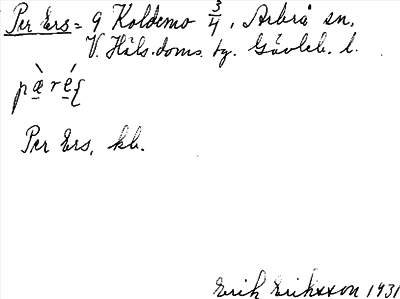 Per Ers = 9 Koldemo 3/4, Arbrå sn,
V. Häls. doms. tg. Gävleb. l.
Per Ers, kb.
Erik Eriksson 1931